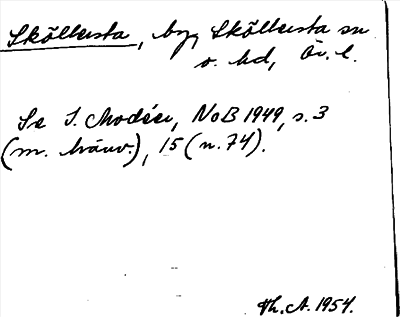 Sköllersta, by, Sköllersta sn
o. hd, Ör. l.
Se I. Modéer, NoB 1949, s. 3
(m. hänv.), 15 (n. 74).
Th. A. 1954.